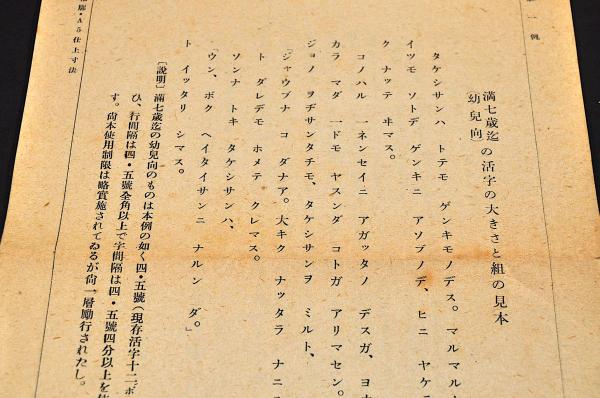 一例
満七歳迄の活字の大きさと組の見本
(幼兒向)
タケシサンハ トテモ ゲンキモノデス。マルマル
イツモ ソトデ ゲンキニ アソブノデ、ヒニ ヤケテ
ク ナッテ ヰマス。
コノハル 一ネンセイニ アガッタノ デスガ、ヨナ
カラ マダ 一ドモ ヤスンダ コトガ アリマセン。
ジョノ ヲヂサンタチモ、タケシサンヲ ミルト、
「ジャウブナ コ ダナア。大キク ナッタラ ナニニ
ト ダレデモ ホメテ クレマス。
ソンナ トキ タケシサンハ、
「ウン、ボク ヘイタイサンニ ナルンダ。」
ト イッタリ シマス。
〔説明〕滿七歲迄の幼兒向のものは本例の如く四・五號(現存活字十二ポ
ひ、行間隔は四・五號全角以上で字間隔は四・五號四分以上を
す。尙本使用制限は略實施されてゐるが尙一層勵行されたし。
・A5仕上寸法